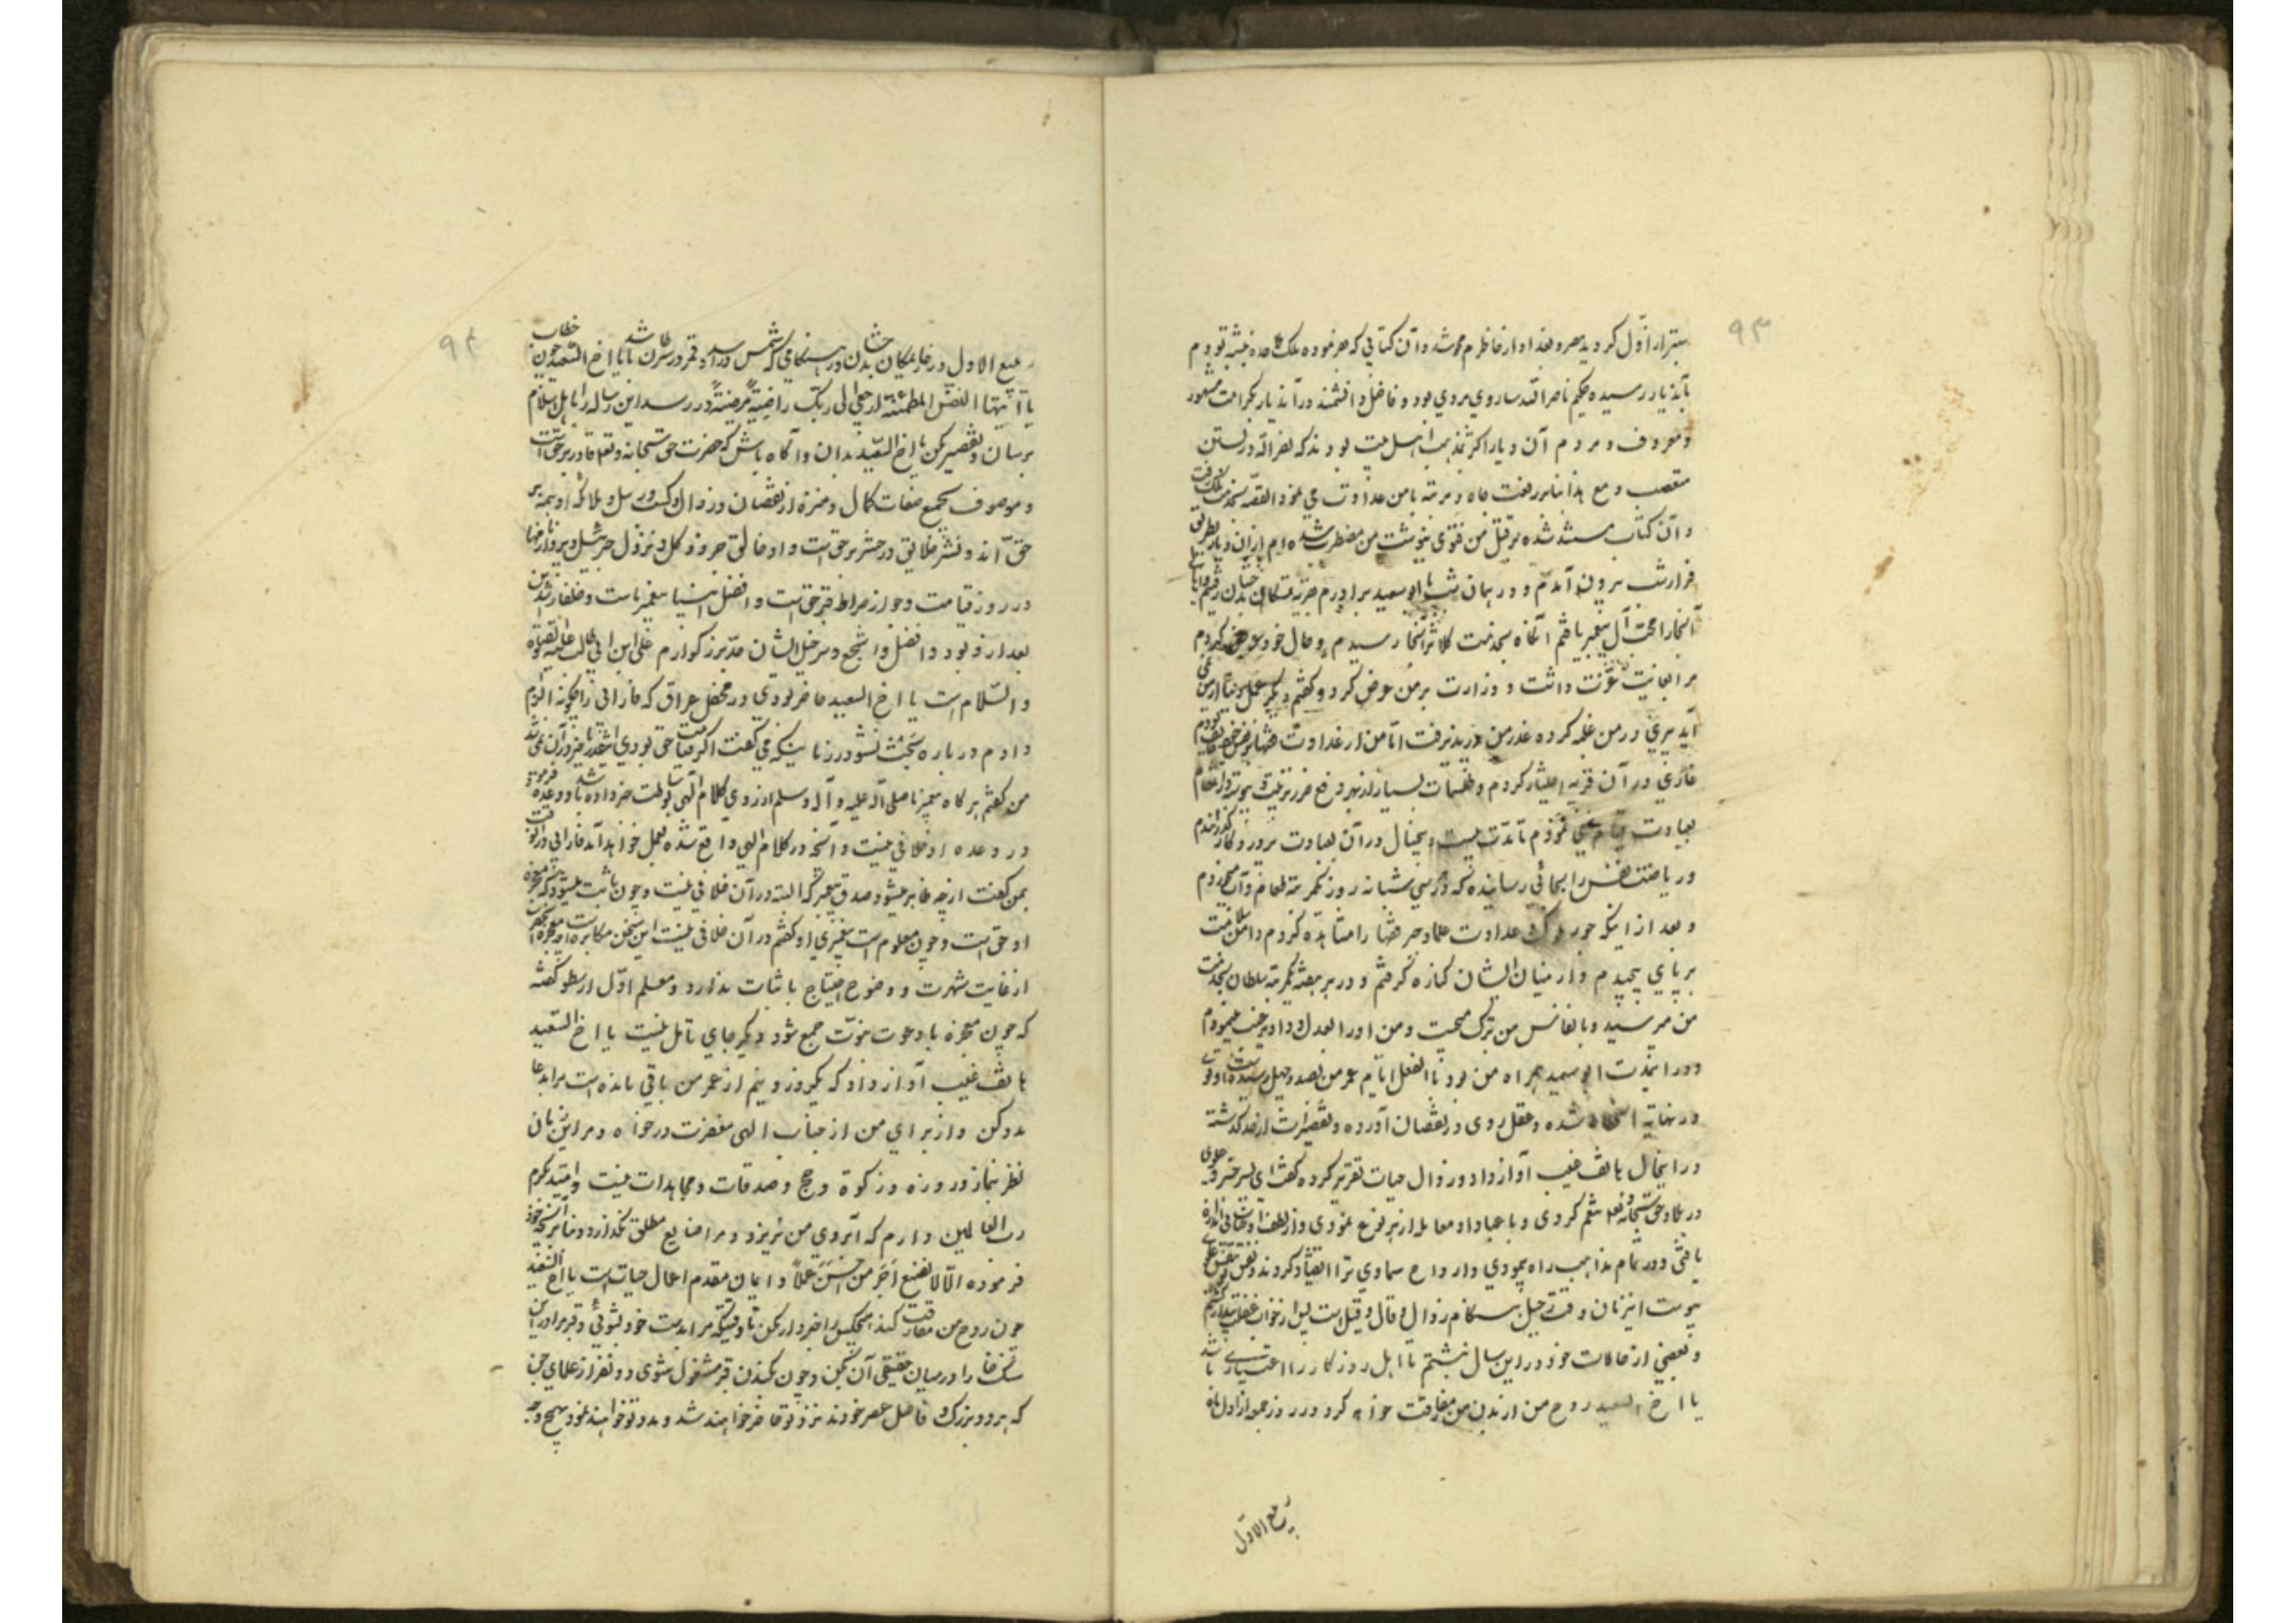 ۹۳
بهتر از اول کردید بعد او از خاطرم محو شد و آن کتابی که هم فرموده ملک ملاحده نبشته بودم
بآن دیار رسیده حکیم ناصر الله ساروی مروی بود و فاضل و دانشمند در آن دیار بکرامت مشهور
و معروف و مردم آن دیار اکثر بمذهب اهل بیت بودند که نصر الله در تسنن
متعصب و مع هذا بنابر رفعت جاه و مرتبه با من عداوتی می نمود القصه بخدمت ملک رفت
و آن کتاب مستند شده بر قتل من فتوی نوشت من مضطرب شده ام از آن دیار بطریق
فرار شب بیرون آمدم و در همان شب با ابو سعید برادرم بمکان بدخشان رفتم
آنجا را محب آل پیغمبر یافتم آنگاه بخدمت کلانتر آنجا رسیدم و حال خود عرض کردم
مرا بغایت عزت داشت و وزارت بر من عرض کرد و گفتم دیگر عمل دنیا از من نمی
آید پیری در من غلبه کرده عذر من در پذیرفت اما من از عداوت فقها بودم
غاری در آن قریه اختیار کردم و طلسمات بسیار از بهر دفع ضرر
بعبادت قیام می نمودم تا مدت بیست و پنج سال در آن بعبادت پرورد کار گذراندم
و ریاضت نفس را بجائی رسانیده که در سی شبانه روز یک مرتبه طعام و آب میخوردم
و بعد از اینکه جور ملوک و عداوت علما و جهر فقها را مشاهده کردم دامن سلامت
بر پای پیچیدم و از میان ایشان کناره گرفتم و در هر هفته یک مرتبه سلطان بخدمت
من میرسید و با نفائس من ترک صحبت و من او را بعدل و داد ترغیب مینمودم
و در این مدت ابو سعید همراه من بود تا الفعل ایام عمر من بصد و چهل رسیده است و قوتی
در نهایه انحطاط شده و عقل روی در نقصان آورده و تقصیرات از حد گذشته
در اینحال هاتف غیب آواز داد و زوال حیات تقریر کرده گفت ای پسر خسرو علوی
در بلاد حق سبحانه تعالی تنعم کردی و با عباد او معامله از هر نوع نمودی و از لطف او
یافتی و در تمام مذاهب راه پیمودی و ارواح سماوی ترا انقیاد کردند
پیوست این زمان وقت رحیل هنگام زوال و قال و قیل است از خواب غفلت بیدار گشتم
و بعضی از حالات خود در این رساله نبشتم تا اهل روزگار را اعتباری باشد
یا اخ السعید روح من از بدن من مفارقت خواهد کرد و در روز جمعه از اول ماه
ربیع الاول
۹۴
ربیع الاول در غار یمکان بدخشان در هنگامی که شمس در اسد و قمر در سرطان باشد یا اخ السعید چون خطاب
یا ایتها النفس المطمئنة ارجعی الی ربک راضیة مرضیة در رسد این رساله را باهل اسلام
برسان و تقصیر مکن یا اخ السعید بدان و آگاه باش که حضرت حق سبحانه و تعالی قادر بر حق است
و موصوف بجمیع صفات کمال و منزه از نقصان و زوال و کتب و رسل و ملائکه او همه بر
حق اند و نشر خلایق در حشر بر حق است و او خالق جزو و کل و نزول جبرئیل
در روز قیامت و جواز صراط بر حق است و افضل انبیا پیغمبر ماست و خلفاء راشدین
بعد از او بود و افضل و اشجع و سرخیل ایشان جد بزرگوارم علی ابن ابی طالب علیه الصلوة
و السلام است یا اخ السعید حاضر بودی در محفل عراق که فارابی را چگونه الزام
دادم در باره بحث نشو در زمانیکه می گفت
من گفتم هر گاه پیغمبر ما صلی الله علیه و آله و سلم از روی کلام الهی خبر داده باشد و وعده فرموده
در وعده او خلافی نیست و آنچه در کلام الهی واقع شده بعمل خواهد آمد فارابی در آنوقت
بمن گفت از چه ظاهر میشود صدق پیغمبر که البته در آن خلافی نیست و چون ثابت میشود که معجزه
او حق است و چون معلوم است پیغمبری او گفتم در آن خلافی نیست این سخن مکابره است
از غایت شهرت و وضوح احتیاج باثبات ندارد و معلم اول ارسطو گفته
که چون معجزه با دعوت نبوت جمع شود دیگر جای تامل نیست یا اخ السعید
هاتف غیب آواز داد که یکروز و نیم از عمر من باقی مانده است مرا بدعا
مدد کن و از برای من از جناب الهی مغفرت درخواه و مرا این زمان
نظر بنماز و روزه و زکوة و حج و صدقات و مجاهدات نیست و امید بکرم
رب العالمین دارم که آبروی من نریزد و مرا ضایع مطلق نگذارد و بنا بر آنچه خود
فرموده انا لا نضیع اجر من احسن عملا و ایمان مقدم اعمال حیات است یا اخ السعید
چون روح من مفارقت کند هیچکس را خبردار مکن تا وقتیکه مرا بدست خود بشوئی و قبر مرا در این
سنگ خارا در میان حقیقی آن بکن و چون بکندن قبر مشغول شوی دو نفر از علمای جن
که هر دو بزرگ و فاضل عصر خودند نزد تو حاضر خواهند شد و مدد تو خواهند نمود بهیچ وجه